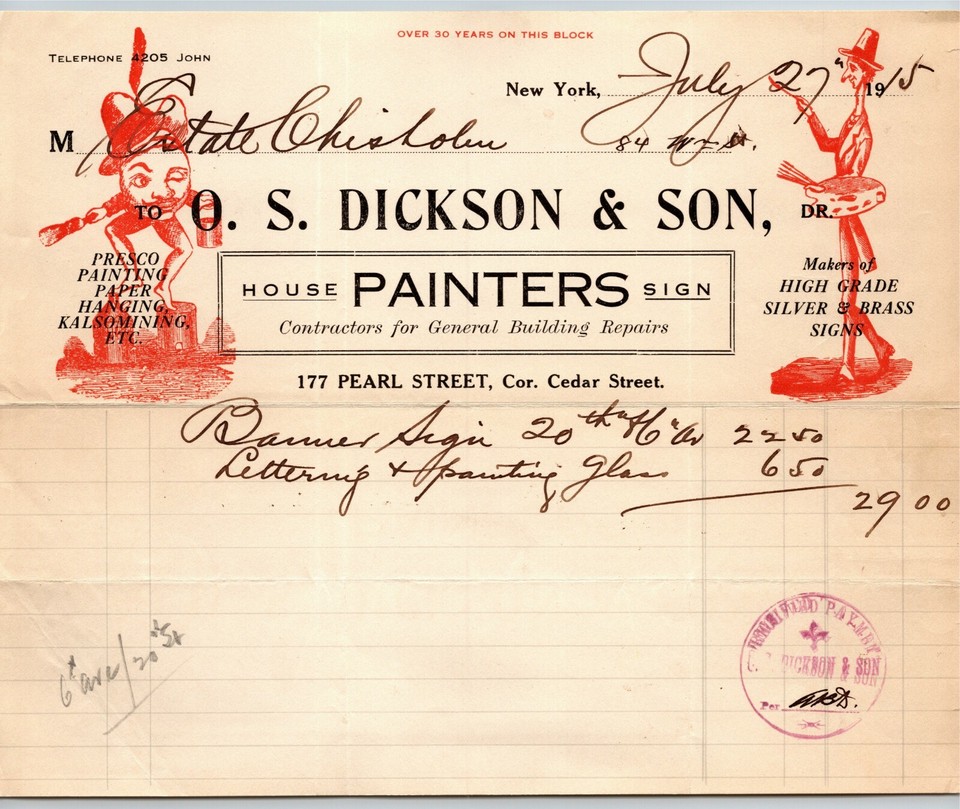 OVER 30 YEARS ON THIS BLOCK
TELEPHONE 4205 JOHN
New York, July 27" 1915
M Estate Chisholm 84 St.
TO O. S. DICKSON & SON, DR.
PRESCO
PAINTING
PAPER
HANGING,
KALSOMINING,
ETC.
HOUSE PAINTERS SIGN
Contractors for General Building Repairs
Makers of
HIGH GRADE
SILVER & BRASS
SIGNS
177 PEARL STREET, Cor. Cedar Street.
Banner Sign 20th & 6" Av 22 50
Lettering & painting Glass 6 50
29 00
6t ave/20 St
RECEIVED PAYMENT
O. S. DICKSON & SON
Per